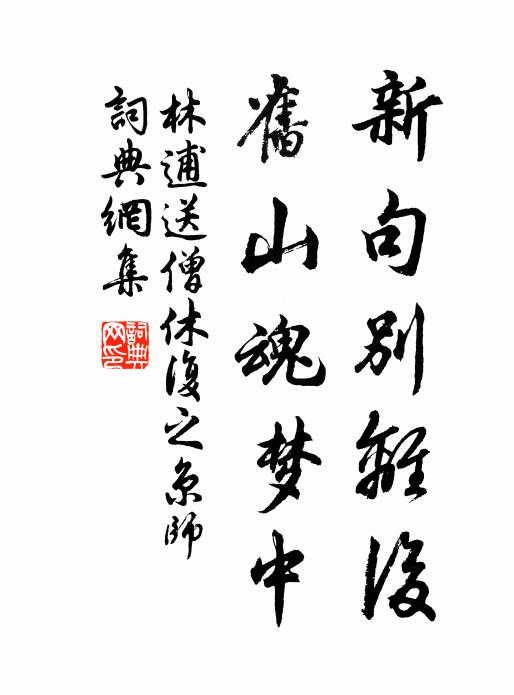 新句別離後
舊山魂梦中
林逋送僧休復之京師
詞典網集
詞典網印